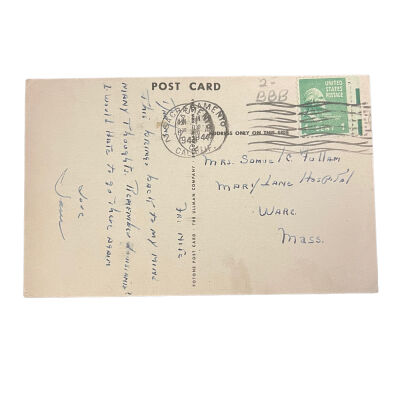 POST CARD
2-
BBB
UNITED STATES POSTAGE
1 CENT 1
SACRAMENTO
1944
CALIF.
ADDRESS ONLY ON THIS SIDE
Mrs. Samuel C. Fullam
Mary Lane Hospital
Ware
Mass.
FOTONE POST CARD - THE ULLMAN COMPANY
Fri Nite
This brings back to my mind
many thoughts.
I would hate to go there again
Love